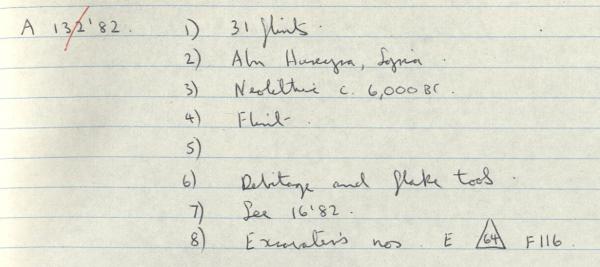 A 132'82. 1) 31 flints.
2) Abu Hureyra, Syria.
3) Neolithic c. 6,000 BC.
4) Flint.
5)
6) Debitage and flake tools.
7) See 16'82.
8) Excavator's nos. E 64 F116